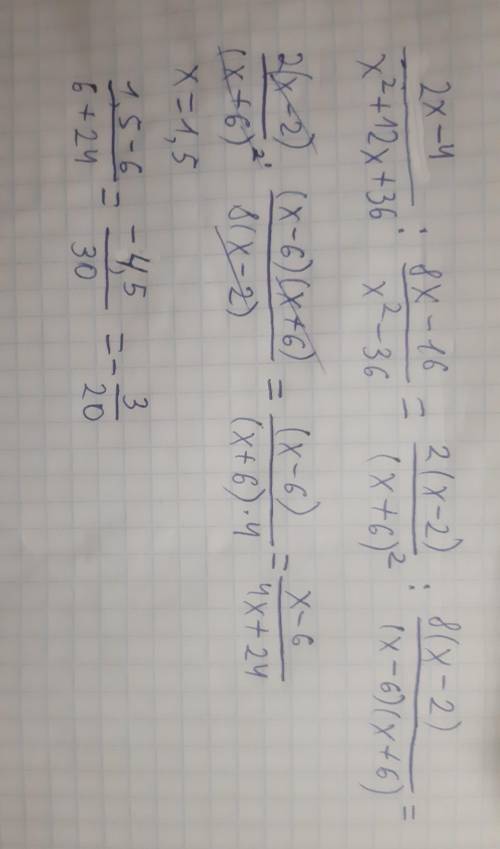 (2x-4)/(x²+12x+36) : (8x-16)/(x²-36) = 2(x-2)/(x+6)² : 8(x-2)/((x-6)(x+6)) =
2(x-2)/(x+6)² · (x-6)(x+6)/(8(x-2)) = (x-6)/((x+6)·4) = (x-6)/(4x+24)
x=1,5
(1,5-6)/(6+24) = -4,5/30 = -3/20